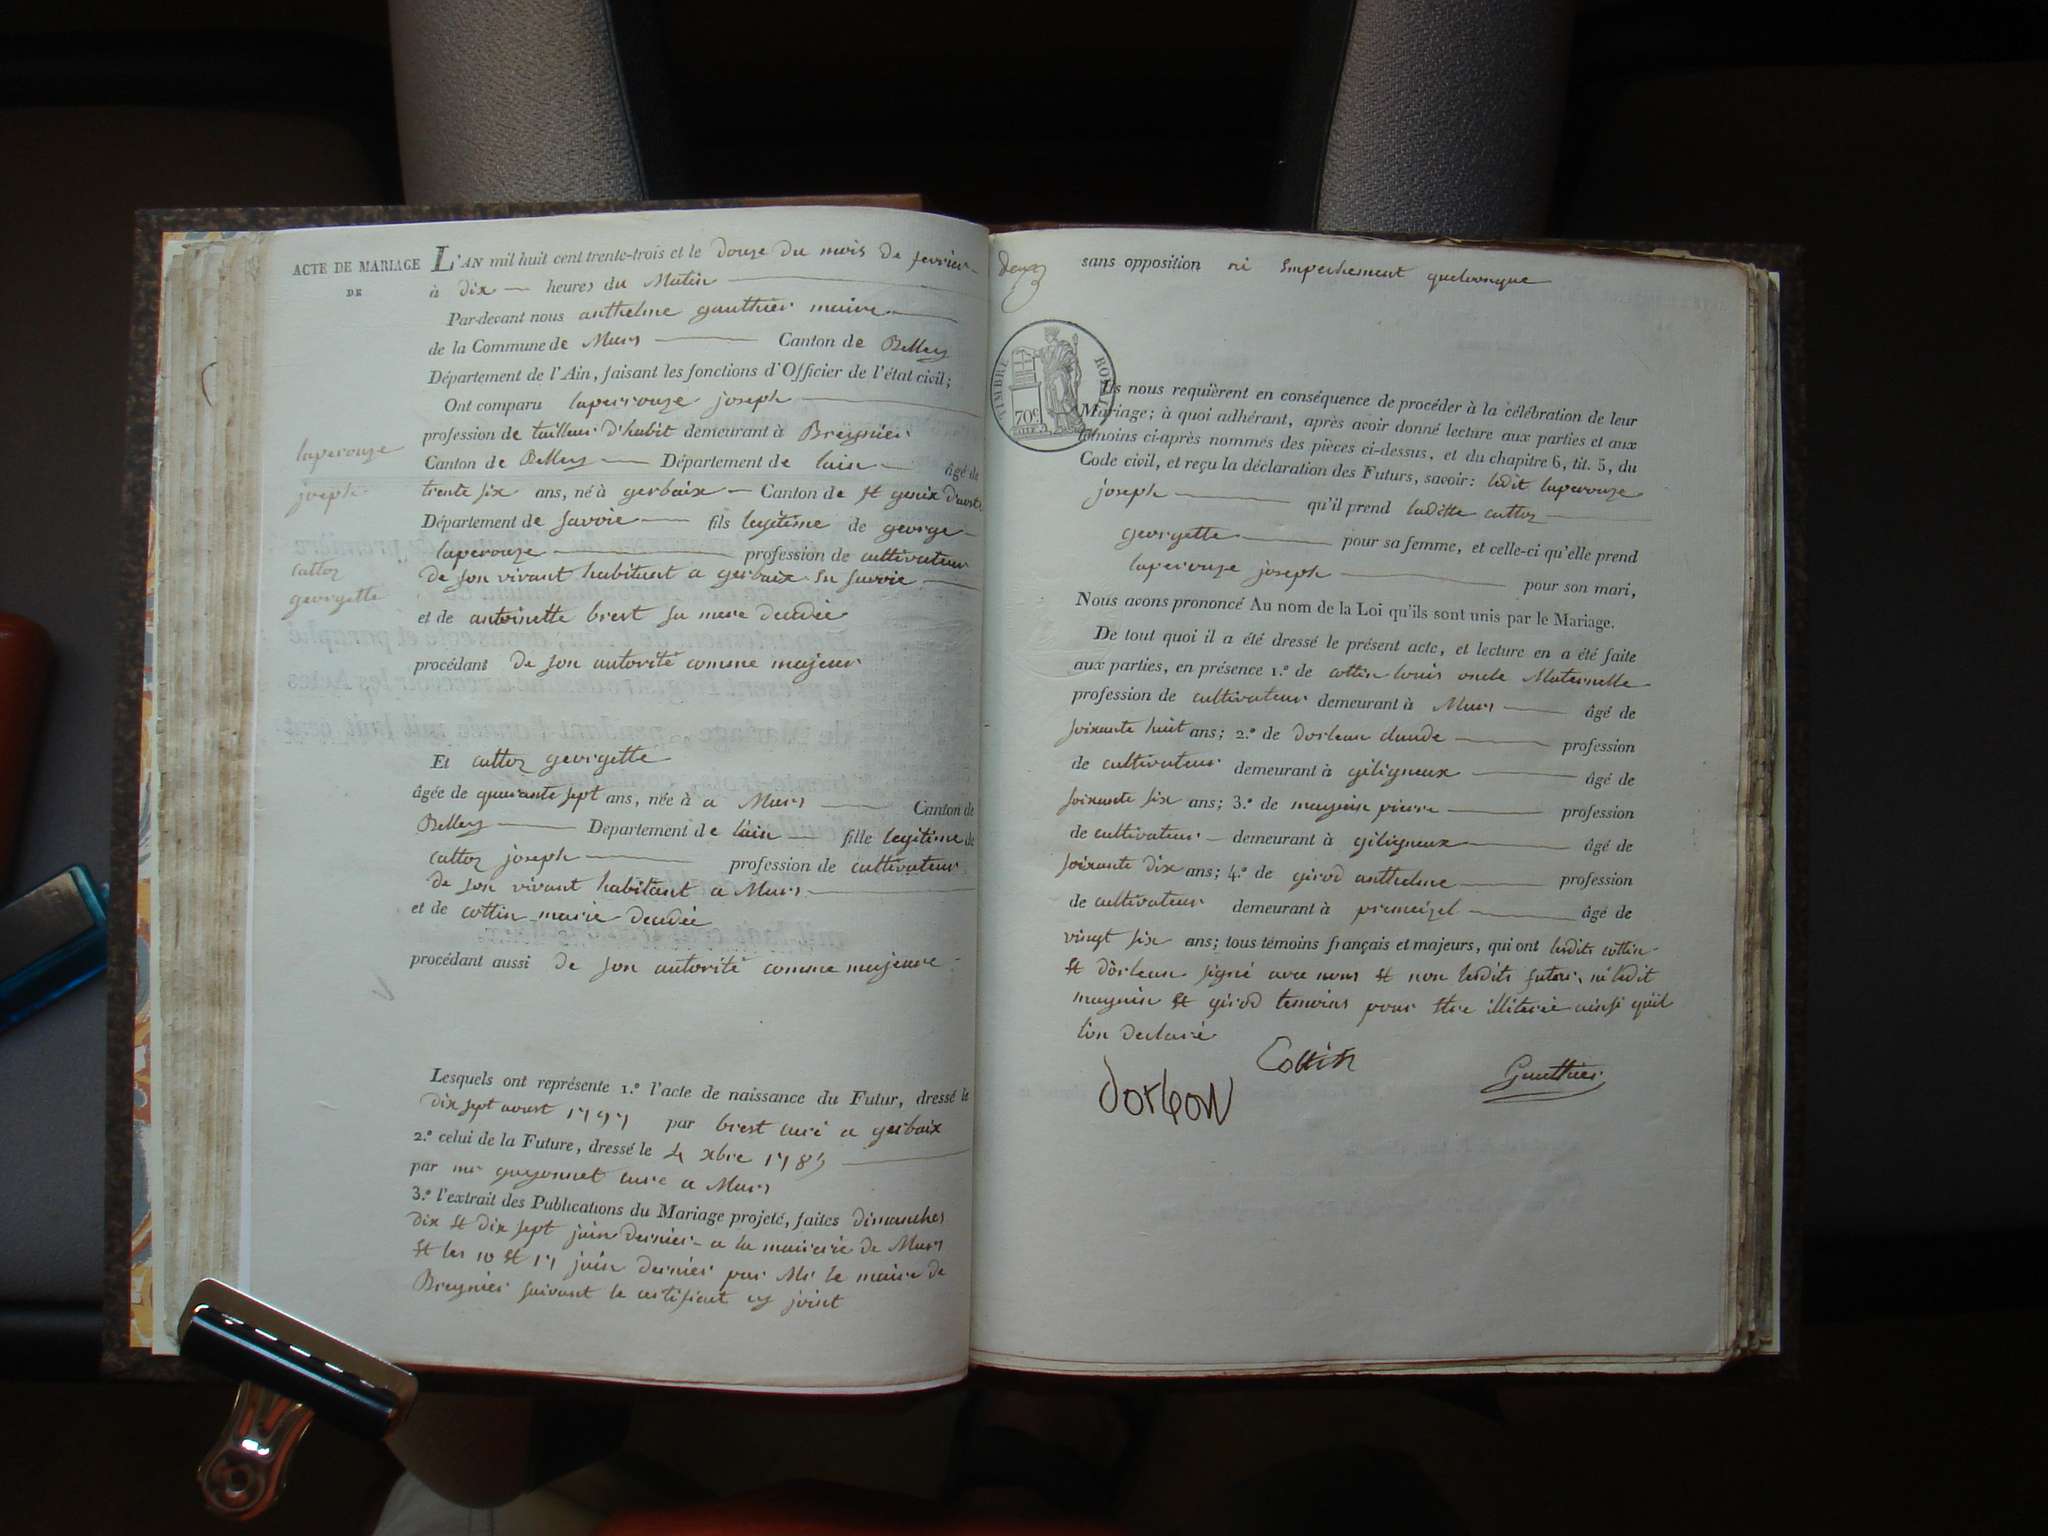 ACTE DE MARIAGE
DE
laperouze
joseph
cattoz
georgette
L'AN mil huit cent trente-trois et le douze du mois de fevrier
à dix heures du Matin
Par-devant nous anthelme gauthier maire
de la Commune de Murs Canton de Belley
Département de l'Ain, faisant les fonctions d'Officier de l'état civil;
Ont comparu laperrouze joseph
profession de tailleur d'habit demeurant à Breynier
Canton de Belley Département de lain âgé de
trente six ans, né à gerbaix Canton de St genix d'aoste
Département de savoie fils legitime de george
laperouze profession de cultivateur
de son vivant habitant a gerbaix en savoie
et de antoinette brest sa mere decedée
procédant de son autorité comme majeur
Et cattoz georgette
âgée de quarante sept ans, née à a Murs Canton de
Belley Département de lain fille legitime de
cattoz joseph profession de cultivateur
de son vivant habitant a Murs
et de cottin marie decedée
procédant aussi de son autorité comme majeure
Lesquels ont représenté 1.º l'acte de naissance du Futur, dressé le
dix sept aoust 1797 par brest curé a gerbaix
2.º celui de la Future, dressé le 4 xbre 1785
par mr guyonnet curé a Murs
3.º l'extrait des Publications du Mariage projeté, faites dimanches
dix et dix sept juin dernier a la mairerie de Murs
et les 10 et 17 juin dernier par Mr le maire de
Breynier suivant le certificat cy joint
deux
sans opposition ni empechement quelconque
TIMBRE ROYAL
70c.
Ils nous requièrent en conséquence de procéder à la célébration de leur
Mariage; à quoi adhérant, après avoir donné lecture aux parties et aux
témoins ci-après nommés des pièces ci-dessus, et du chapitre 6, tit. 5, du
Code civil, et reçu la déclaration des Futurs, savoir: ledit laperouze
joseph qu'il prend laditte cattoz
georgette pour sa femme, et celle-ci qu'elle prend
laperouze joseph pour son mari,
Nous avons prononcé Au nom de la Loi qu'ils sont unis par le Mariage.
De tout quoi il a été dressé le présent acte, et lecture en a été faite
aux parties, en présence 1.º de cottin louis oncle Maternelle
profession de cultivateur demeurant à Murs âgé de
soixante huit ans; 2.º de dorleau claude profession
de cultivateur demeurant à giligneux âgé de
soixante six ans; 3.º de magnin pierre profession
de cultivateur demeurant à giligneux âgé de
soixante dix ans; 4.º de girod anthelme profession
de cultivateur demeurant à premeizel âgé de
vingt six ans; tous témoins français et majeurs, qui ont lesdits cottin
et dorleau signé avec nous et non lesdits futurs, ni ledit
magnin et girod temoins pour etre illiteré ainsi quil
l'on declaré
Cottin
dorleon
Gauthier